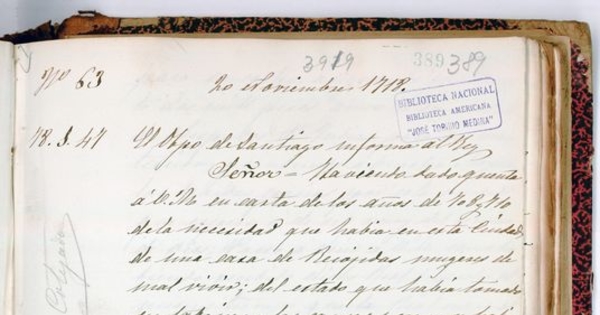 Nº 63
3919
389 389
20 Noviembre 1718.
BIBLIOTECA NACIONAL
BIBLIOTECA AMERICANA
"JOSÉ TORIBIO MEDINA"
78. J. 47
El Obpo. de Santiago informa al Rey
Señor = Haviendo dado quenta
á V. M. en carta de los años de 708 y 710
de la necesidad que habia en esta Ciudad
de una casa de Recojidas mugeres de
mal vivir; del estado que habia tomado
Cotejado